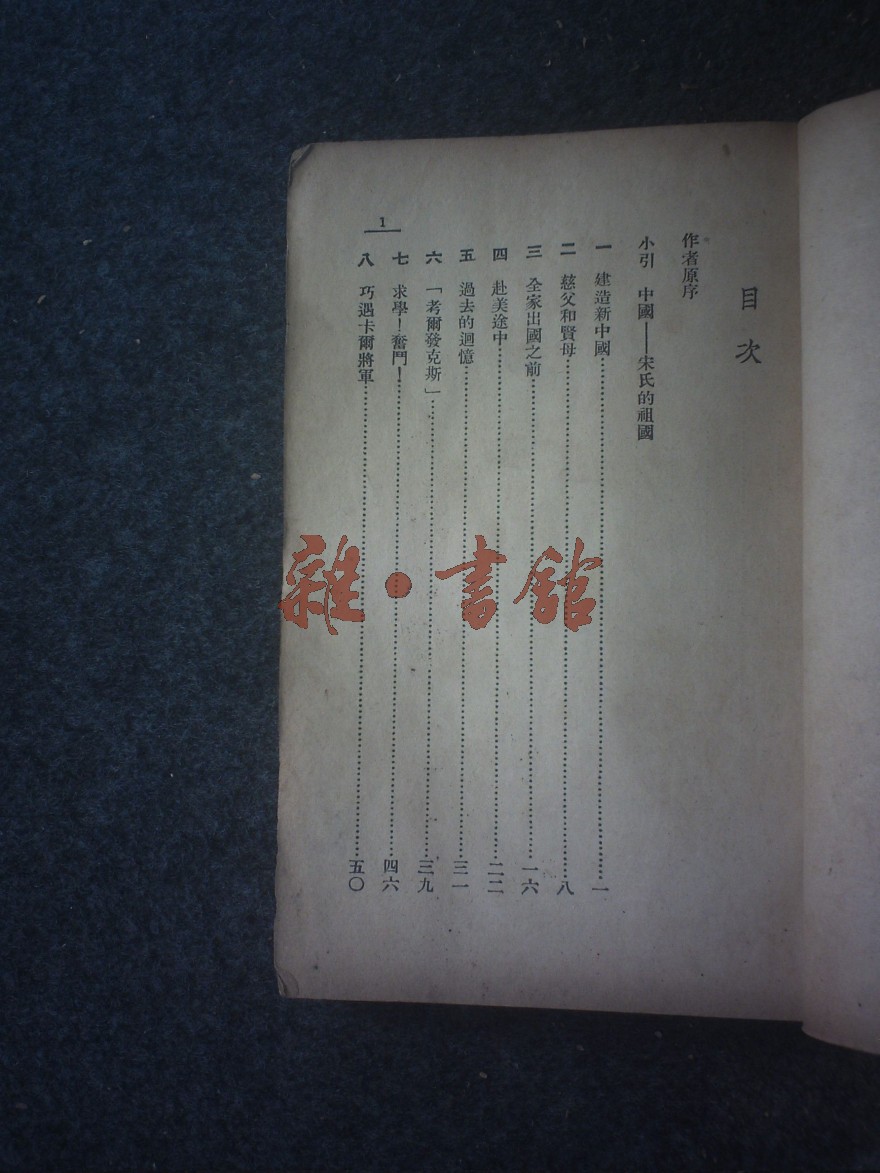 目次
作者原序
小引 中國——宋氏的祖國
一 建造新中國……一
二 慈父和賢母……八
三 全家出國之前……一六
四 赴美途中……二二
五 過去的迴憶……三一
六 「考爾發克斯」……三九
七 求學！奮鬥！……四六
八 巧遇卡爾將軍……五〇
1
雜·書館